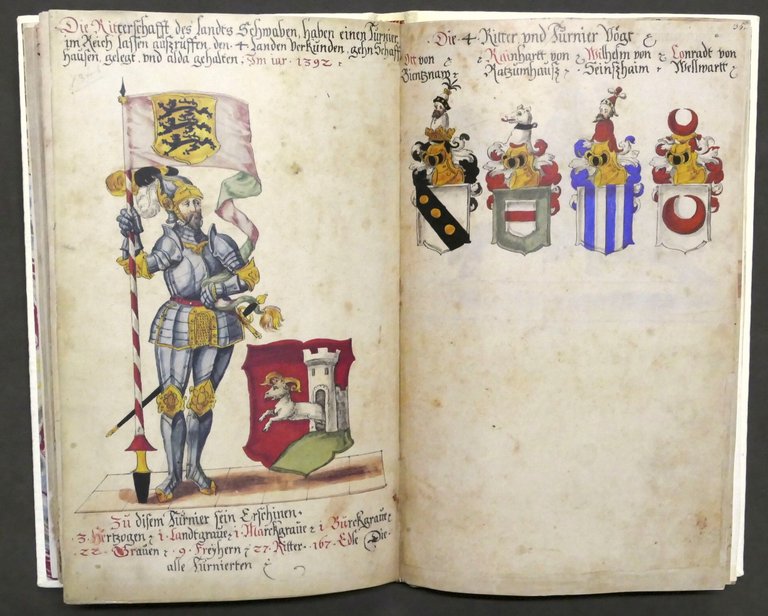 Die Ritterschafft des Landes Schwaben, haben einen Turnier,
im Reich lassen außruffen, den 4 Landen verkunden, gehn Schaff
hausen, gelegt, vnd alda gehalten, Im iar 1392
Zu disem Turnier sein Erschinen
3 Hertzogen 1 Landtgraue 1 Marckgraue 1 Burckgraue
22 Grauen 9 Freyhern 27 Ritter 167 Edle Die
alle Turnierten
34.
Die 4 Ritter vnd Turnier Vögt
Ott von Rainhartt von Wilhelm von Conradt von
Ratzumhauß Seinßhaim Wellwartt